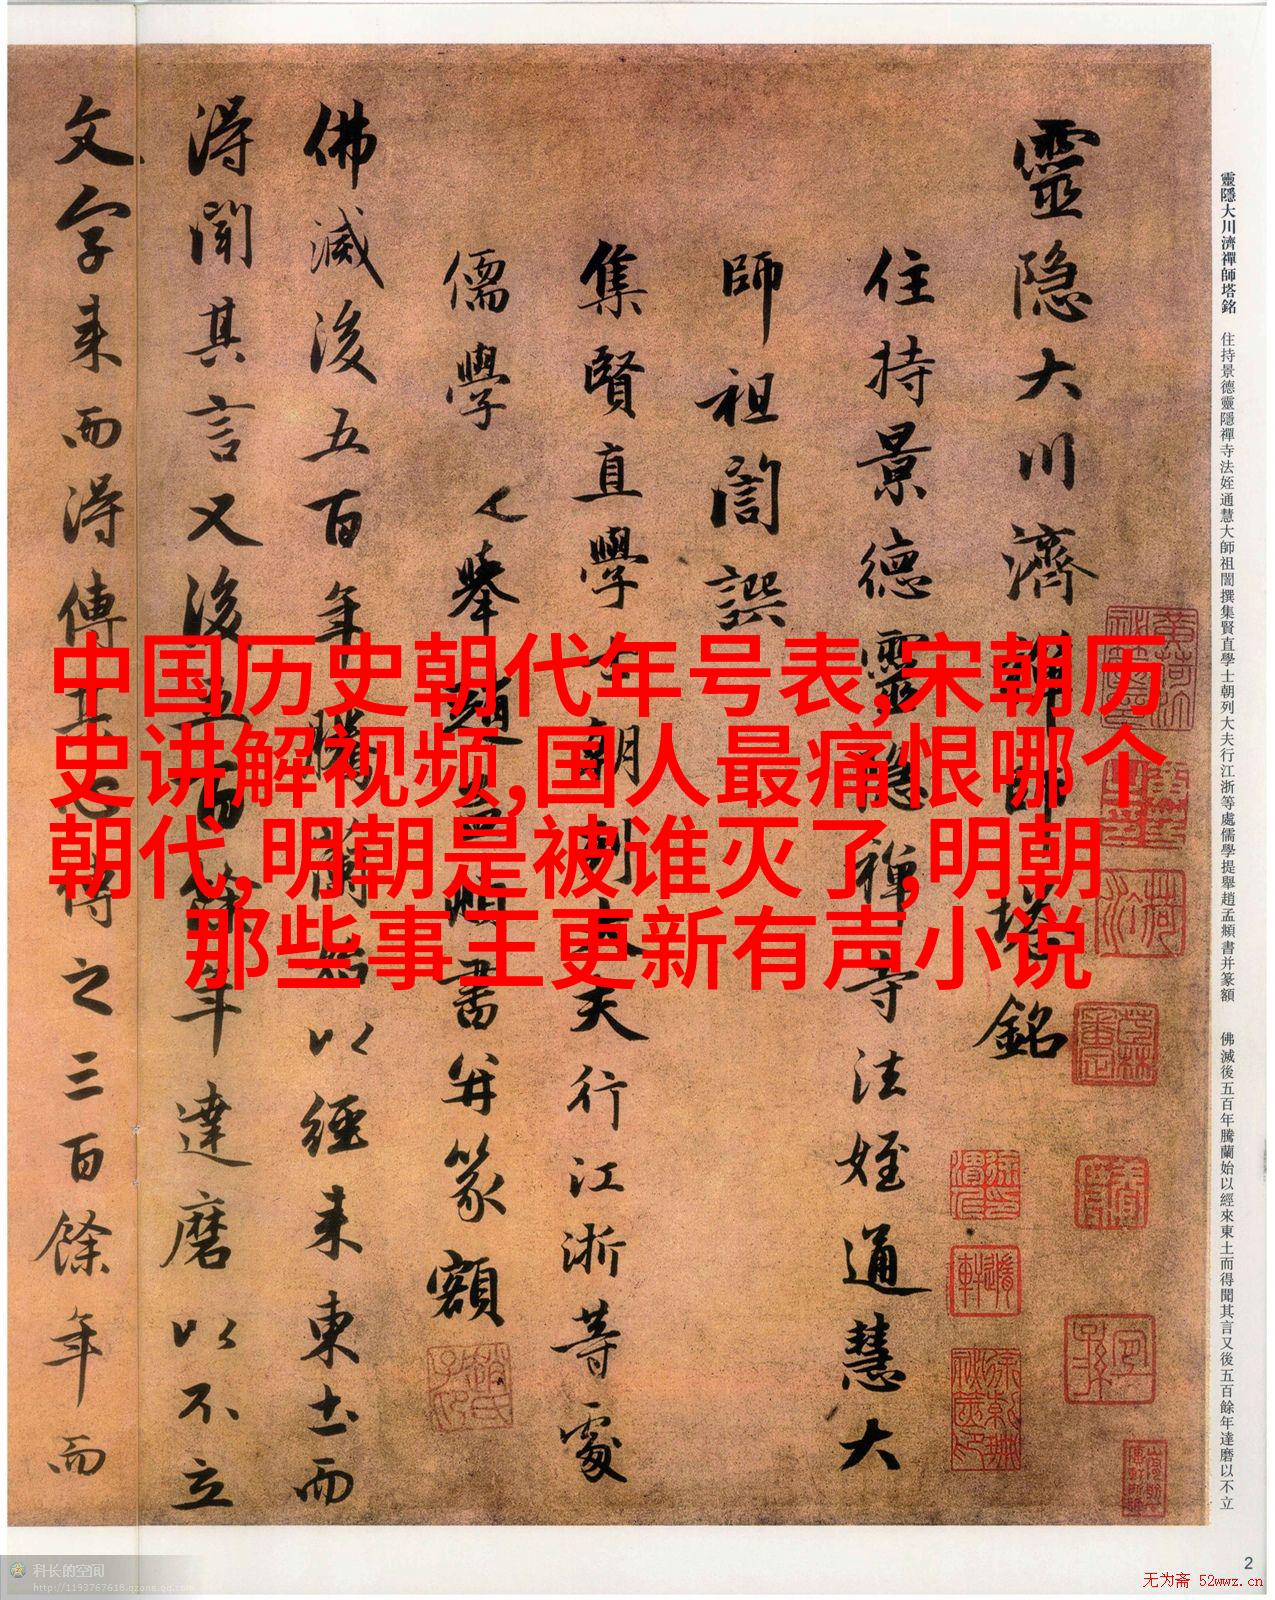 靈隱大川濟禪師塔銘
住持景德靈隱禪寺法姪通慧大
師祖誾譔
集賢直學士朝列大夫行江浙等處
儒學提舉趙孟頫書并篆額
佛滅後五百年騰蘭始以經來東土而
得聞其言又後五百餘年達磨以不立
文字來而得傳其心傳之三百餘年而
靈隱大川濟禪師塔銘 住持景德靈隱禪寺法姪通慧大師祖誾撰集賢直學士朝列大夫行江浙等處儒學提舉趙孟頫書并篆額 佛滅後五百年騰蘭始以經來東土而得聞其言又後五百餘年達磨以不立
中国历史朝代年号表,宋朝历
史讲解视频,国人最痛恨哪个
朝代,明朝是被谁灭了,明朝
那些事王更新有声小说
科长的空间
http://1193767618.qzone.qq.com
2
无为斋 52wwz.cn